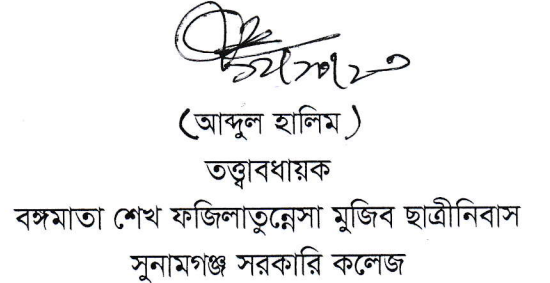 (আব্দুল হালিম)
তত্ত্বাবধায়ক
বঙ্গমাতা শেখ ফজিলাতুন্নেসা মুজিব ছাত্রীনিবাস
সুনামগঞ্জ সরকারি কলেজ